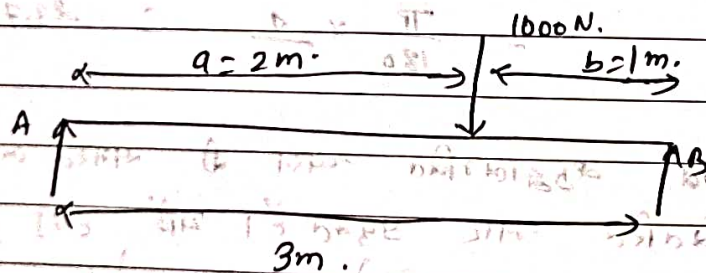 1000 N.
a = 2 m.
b = 1 m.
A
B
3 m.